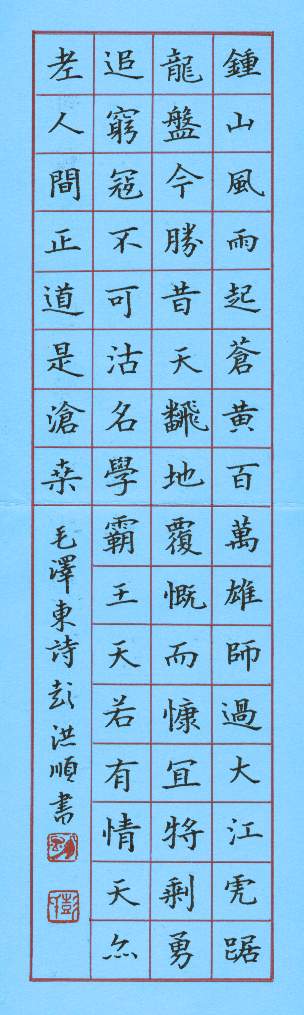 鍾山風雨起蒼黃百萬雄師過大江虎踞
龍盤今勝昔天飜地覆慨而慷宜將剩勇
追窮寇不可沽名學霸王天若有情天亦
老人間正道是滄桒
毛澤東詩彭洪順書